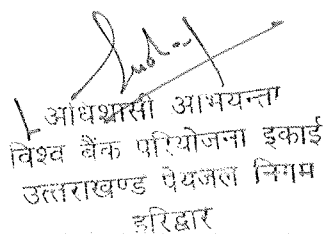 अधिशासी अभियन्ता
विश्व बैंक परियोजना इकाई
उत्तराखण्ड पेयजल निगम
हरिद्वार